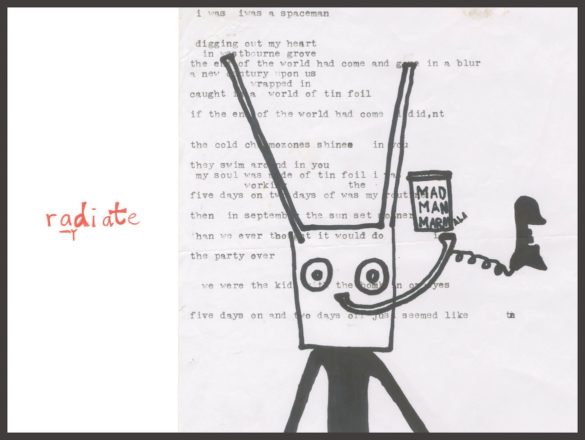 radiate
i was iwas a spaceman
digging out my heart
in westbourne grove
the end of the world had come and gone in a blur
a new century upon us
wrapped in
caught in a world of tin foil
if the end of the world had come i did,nt
the cold shines in you
they swim around in you
my soul was made of tin foil i
working the
five days on two days of was my
MAD
MAN
then in september the sun set
than we ever it would do
the party over
we were the in eyes
five days on and two days off just seemed like